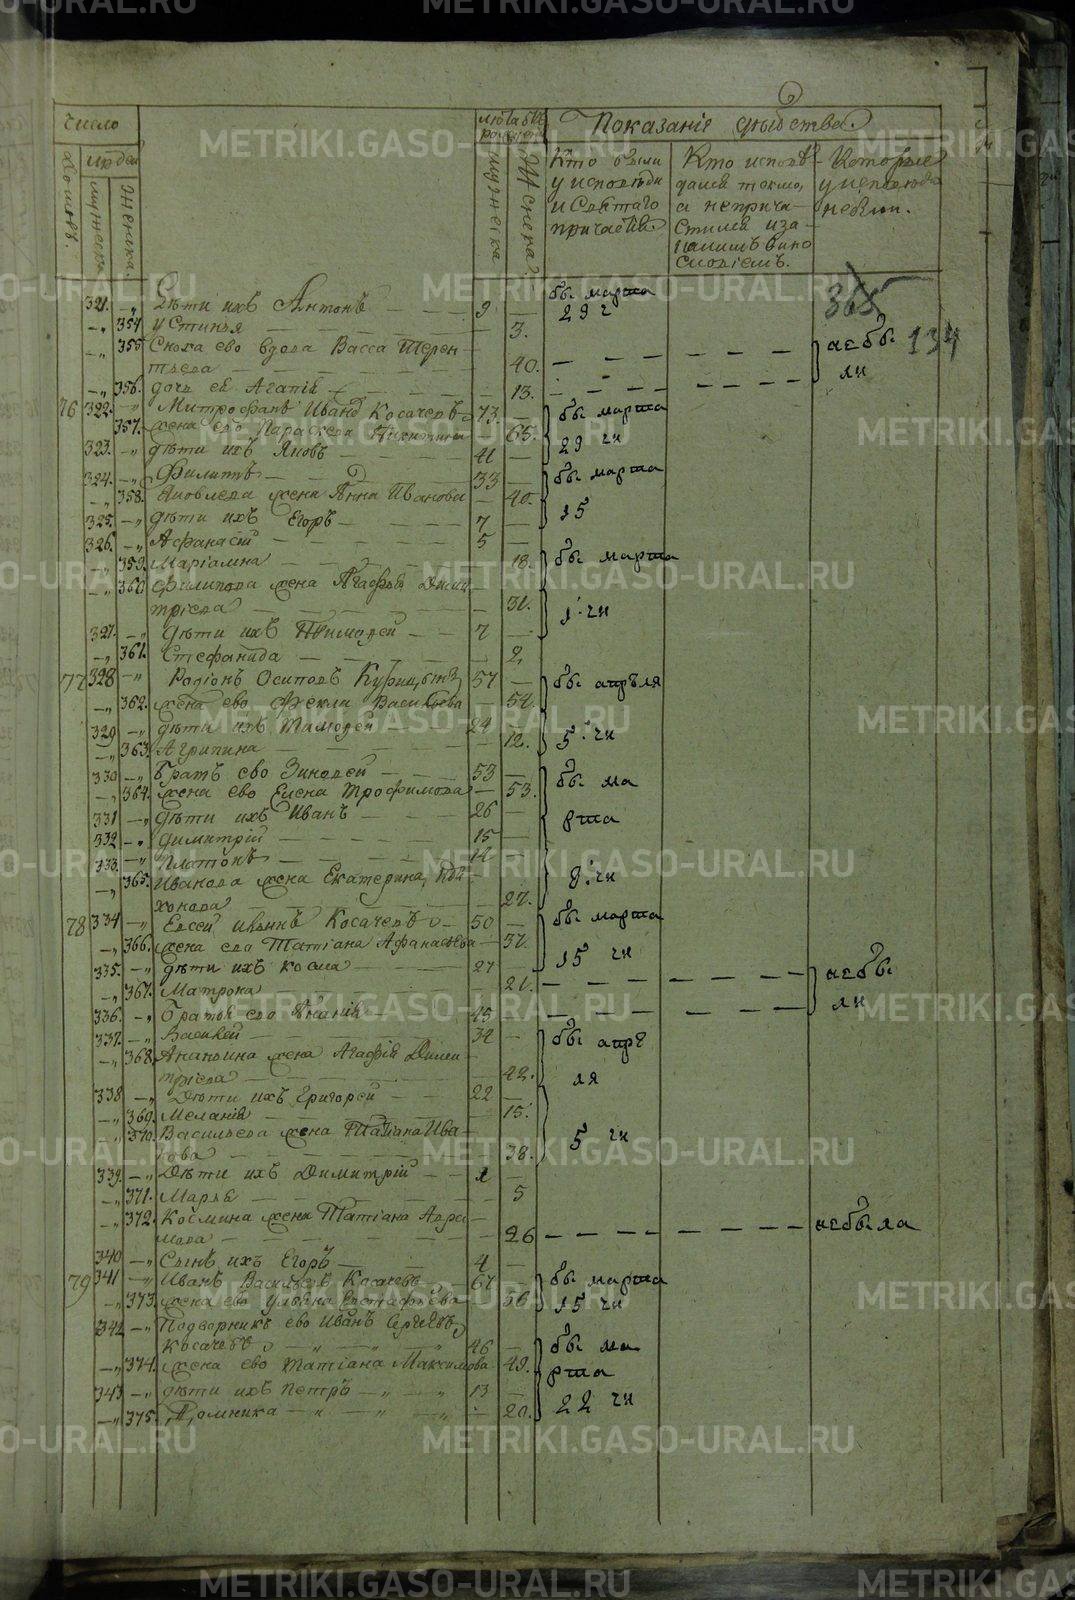 METRIKI.GASO-URAL.RU
Число
людей
Показанiе дѣйства.
дворовъ.
мужеска.
женска.
мужеска
женска
Кто были
у исповѣди
и Святаго
причастiя
Кто исповѣ-
дался токмо,
а неприча-
стился и за
каким вино
словiемъ.
Которые
у исповѣди
небыли.
365
134
321. -„ Дѣти ихъ Антонъ 9 — бы марта
-„ 354 Устинья — 3. 29 ч
-„ 355 Сноха ево вдова Васса Терен-
тьева — 40. — небы
-„ 356. дочь ея Агапiя — 13. — ли
76 322. -„ Митрофанъ Иванъ Косачевъ 73. — бы марта
357. жена ево Параскева Никитина — 65. 29 чи
323. -„ дѣти ихъ Яковъ 41 —
324. -„ Филиппъ 33 — бы марта
-„ 358. Яковлева жена Анна Иванова — 40.
325. -„ дѣти ихъ Егоръ 7 — 15
326. -„ Афанасiй 5 —
-„ 359. Марiамна — 18. бы марта
-„ 360 Филипова жена Агафья Дми
трiева — 31. 1 чи
327. -„ дѣти ихъ Тимофей 7 —
-„ 361. Стефанида — 2.
77 328 -„ Родiонъ Осиповъ 57 — бы апрѣля
-„ 362. жена ево Фекла Васильева — 54.
329 -„ дѣти ихъ 24 — 5 чи
-„ 363. Агрипина — 12.
330 -„ братъ ево Зиновей 53 — бы ма
-„ 364. жена ево Елена Трофимова — 53.
331 -„ дѣти ихъ Иванъ 26 — рта
332 -„ Димитрiй 15 —
333. -„ Платонъ 12 —
-„ 365. Иванова жена Екатерина 8. чи
хонова — 27.
78 334 -„ Евсей Косачевъ 50 — бы марта
-„ 366. жена ево Татiана Афанасьева — 57.
335. -„ дѣти ихъ Косма 27 15 чи
-„ 367. Матрона — 21. — небы
336. -„ Братья ево Ананiй 45 — ли
337. -„ Василей 34 — бы апрѣ
-„ 368. Ананьина жена Агафiя Дими
трiева — 42. ля
338 -„ Дѣти ихъ Григорей 22 —
-„ 369. Меланiя — 15.
-„ 370. Васильева жена Татiана Ива
нова — 38. 5 чи
339. -„ Дѣти ихъ Димитрiй 1 —
-„ 371. Марья — 5
-„ 372. Космина жена Татiана
— 26 — небыла
340 -„ Сынъ ихъ Егоръ 4 —
79 341 -„ Иванъ Васильевъ Косачевъ 67 — бы марта
-„ 373. жена ево Ульяна Евстафьева — 56 15 чи
342 -„ Подворникъ ево Иванъ Сергѣевъ
Косачевъ 46 — бы ма
-„ 374. жена ево Татiана Максимова — 49. рта
343 -„ дѣти ихъ Петръ 13 —
-„ 375. Домника — 20. 22 чи